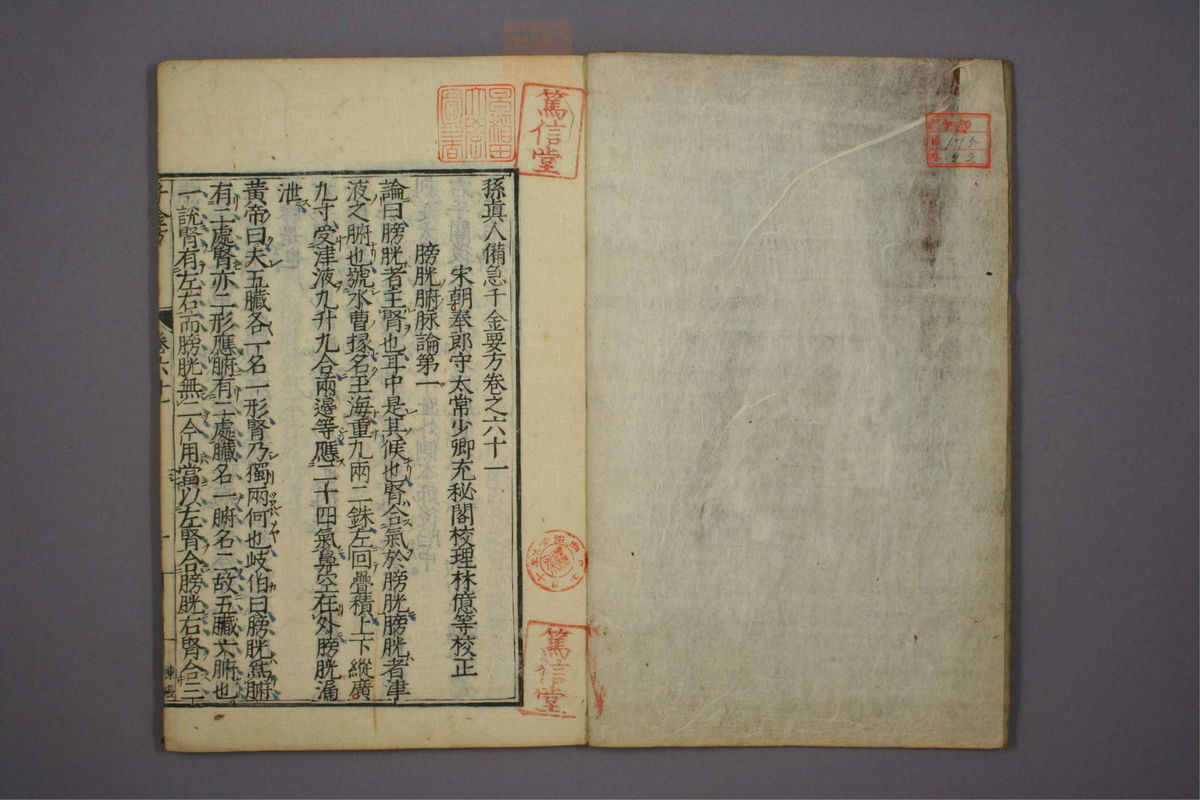 孫眞人備急千金要方卷之六十一
宋朝奉郎守太常少卿充秘閣校理林億等校正
膀胱腑脉論第一
論曰膀胱者主腎也耳中是其候也腎合氣於膀胱膀胱者津
液之腑也號水曹掾名玉海重九兩二銖左回疊積上下縱廣
九寸受津液九升九合兩邊等應二十四氣鼻空在外膀胱漏
泄
黃帝曰夫五臟各一名一形腎乃獨兩何也岐伯曰膀胱爲腑
有二處腎亦二形應腑有二處臟名一腑名二故五臟六腑也
一說腎有左右而膀胱無二今用當以左腎合膀胱右腎合三
卷六十一
篤信堂
篤信堂